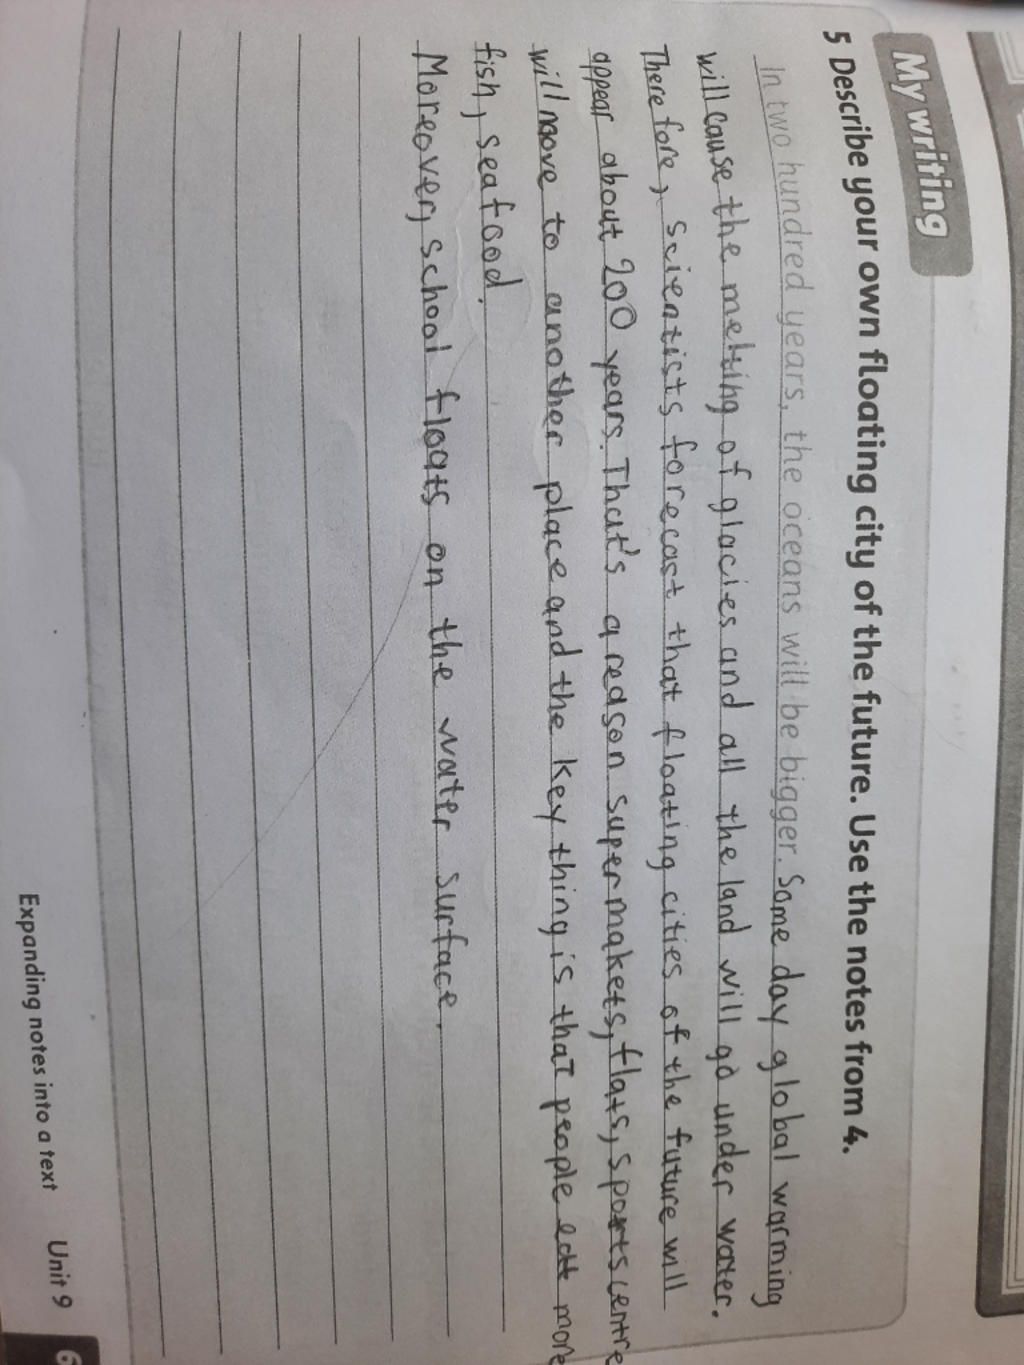 My writing
5 Describe your own floating city of the future. Use the notes from 4.
In two hundred years, the oceans will be bigger. Some day global warming
will cause the melting of glacies and all the land will go under water.
There fore, scientists forecast that floating cities of the future will
appear about 200 years. That's a reason supermakets, flats, sports centre
will move to another place and the key thing is that people eat more
fish, seafood.
Moreover, school floats on the water surface.
Expanding notes into a text Unit 9
6